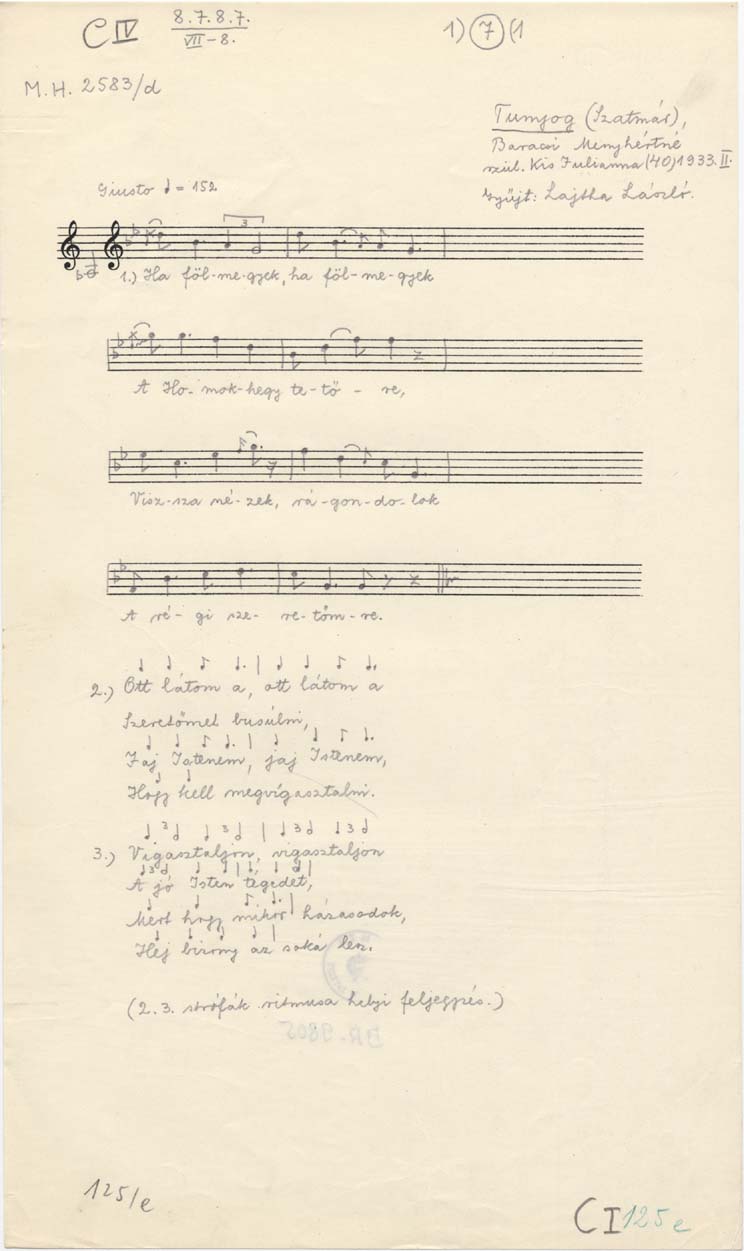 CIV 8.7.8.7. 1) 7 (1
VII-8.
M.H. 2583/d
Tunyog (Szatmár),
Baracsi Menyhértné
szül. Kis Julianna (40) 1933. II.
Gyűjt: Lajtha László.
Giusto ♩ = 152
3
1.) Ha föl-me-gyek, ha föl-me-gyek
A Ho-mok-hegy te-tő-re,
Visz-sza né-zek, rá-gon-do-lok
A ré-gi sze-re-tőm-re.
2.) Ott látom a, ott látom a
Szeretőmet busúlni,
Jaj Istenem, jaj Istenem,
Hogy kell megvígasztalni.
3 3 3 3
3.) Vigasztaljon, vigasztaljon
3
A jó Isten tégedet,
Mert hogy mikor házasodok,
Héj bizony az soká lesz.
(2. 3. strófák ritmusa helyi feljegyzés.)
BR. 9805
125/e
CI 125e